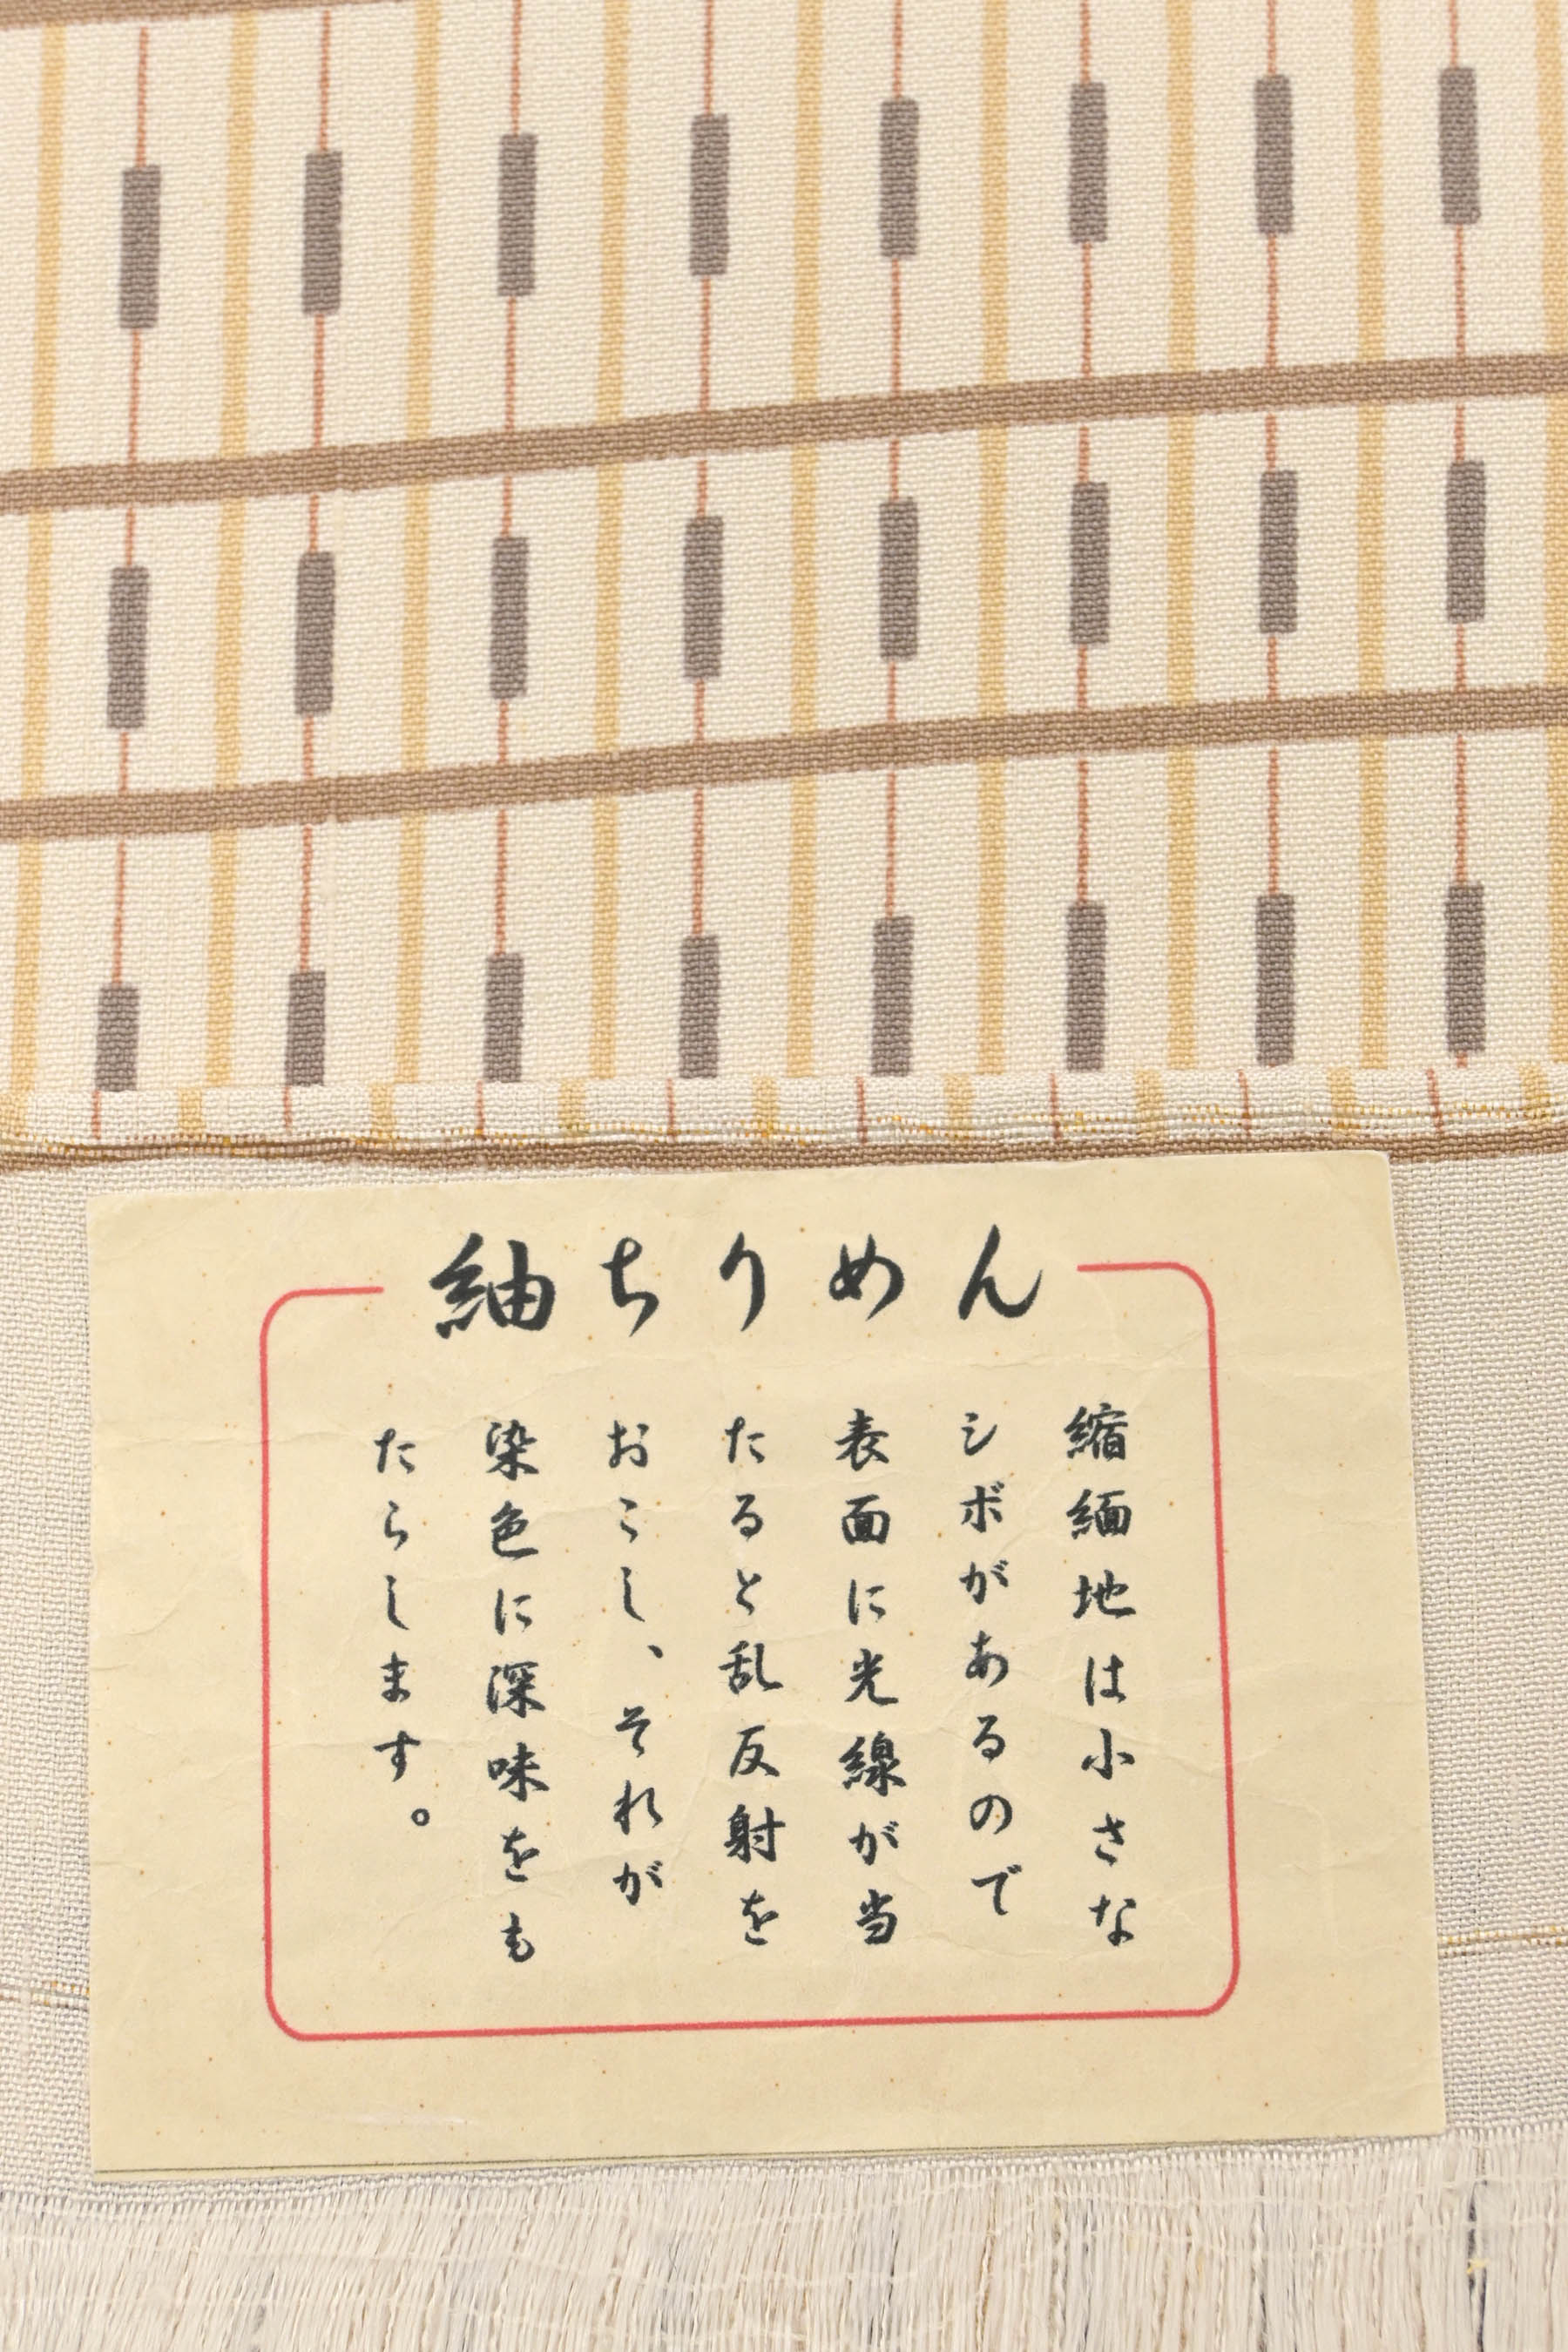 紬ちりめん
縮緬地は小さな
シボがあるので
表面に光線が当
たると乱反射を
おこし、それが
染色に深味をも
たらします。